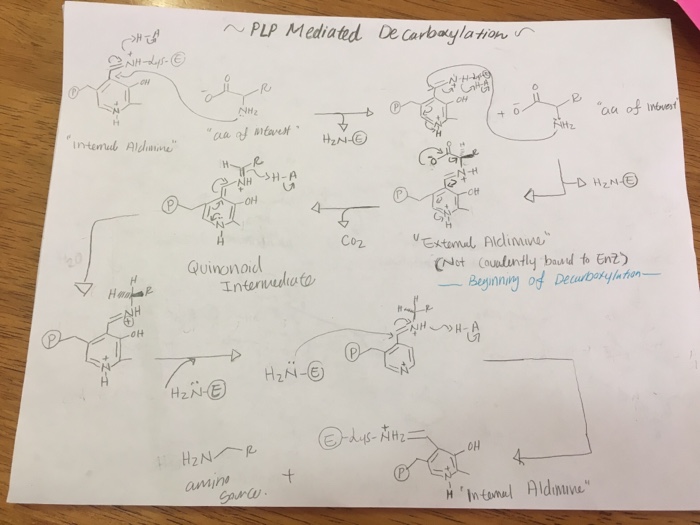 ~ PLP Mediated Decarboxylation ~
H-A
NH-Lys-E
OH
P
N
H
O
-O
R
NH2
"Internal Aldimine"
"aa of interest"
H2N-E
P
OH
N
H
+
O
-O
R
NH2
"aa of interest"
H2N-E
P
N-H
OH
N
H
"External Aldimine"
(Not covalently bound to Enz)
— Beginning of Decarboxylation —
CO2
H
R
NH
H-A
P
OH
N
H
Quinonoid
Intermediate
H
H
R
NH
P
OH
N
H
H2N-E
H2N-E
H
R
NH
H-A
P
N
E-Lys-NH2
P
OH
N
H
"Internal Aldimine"
H2N
R
amino
source.
+